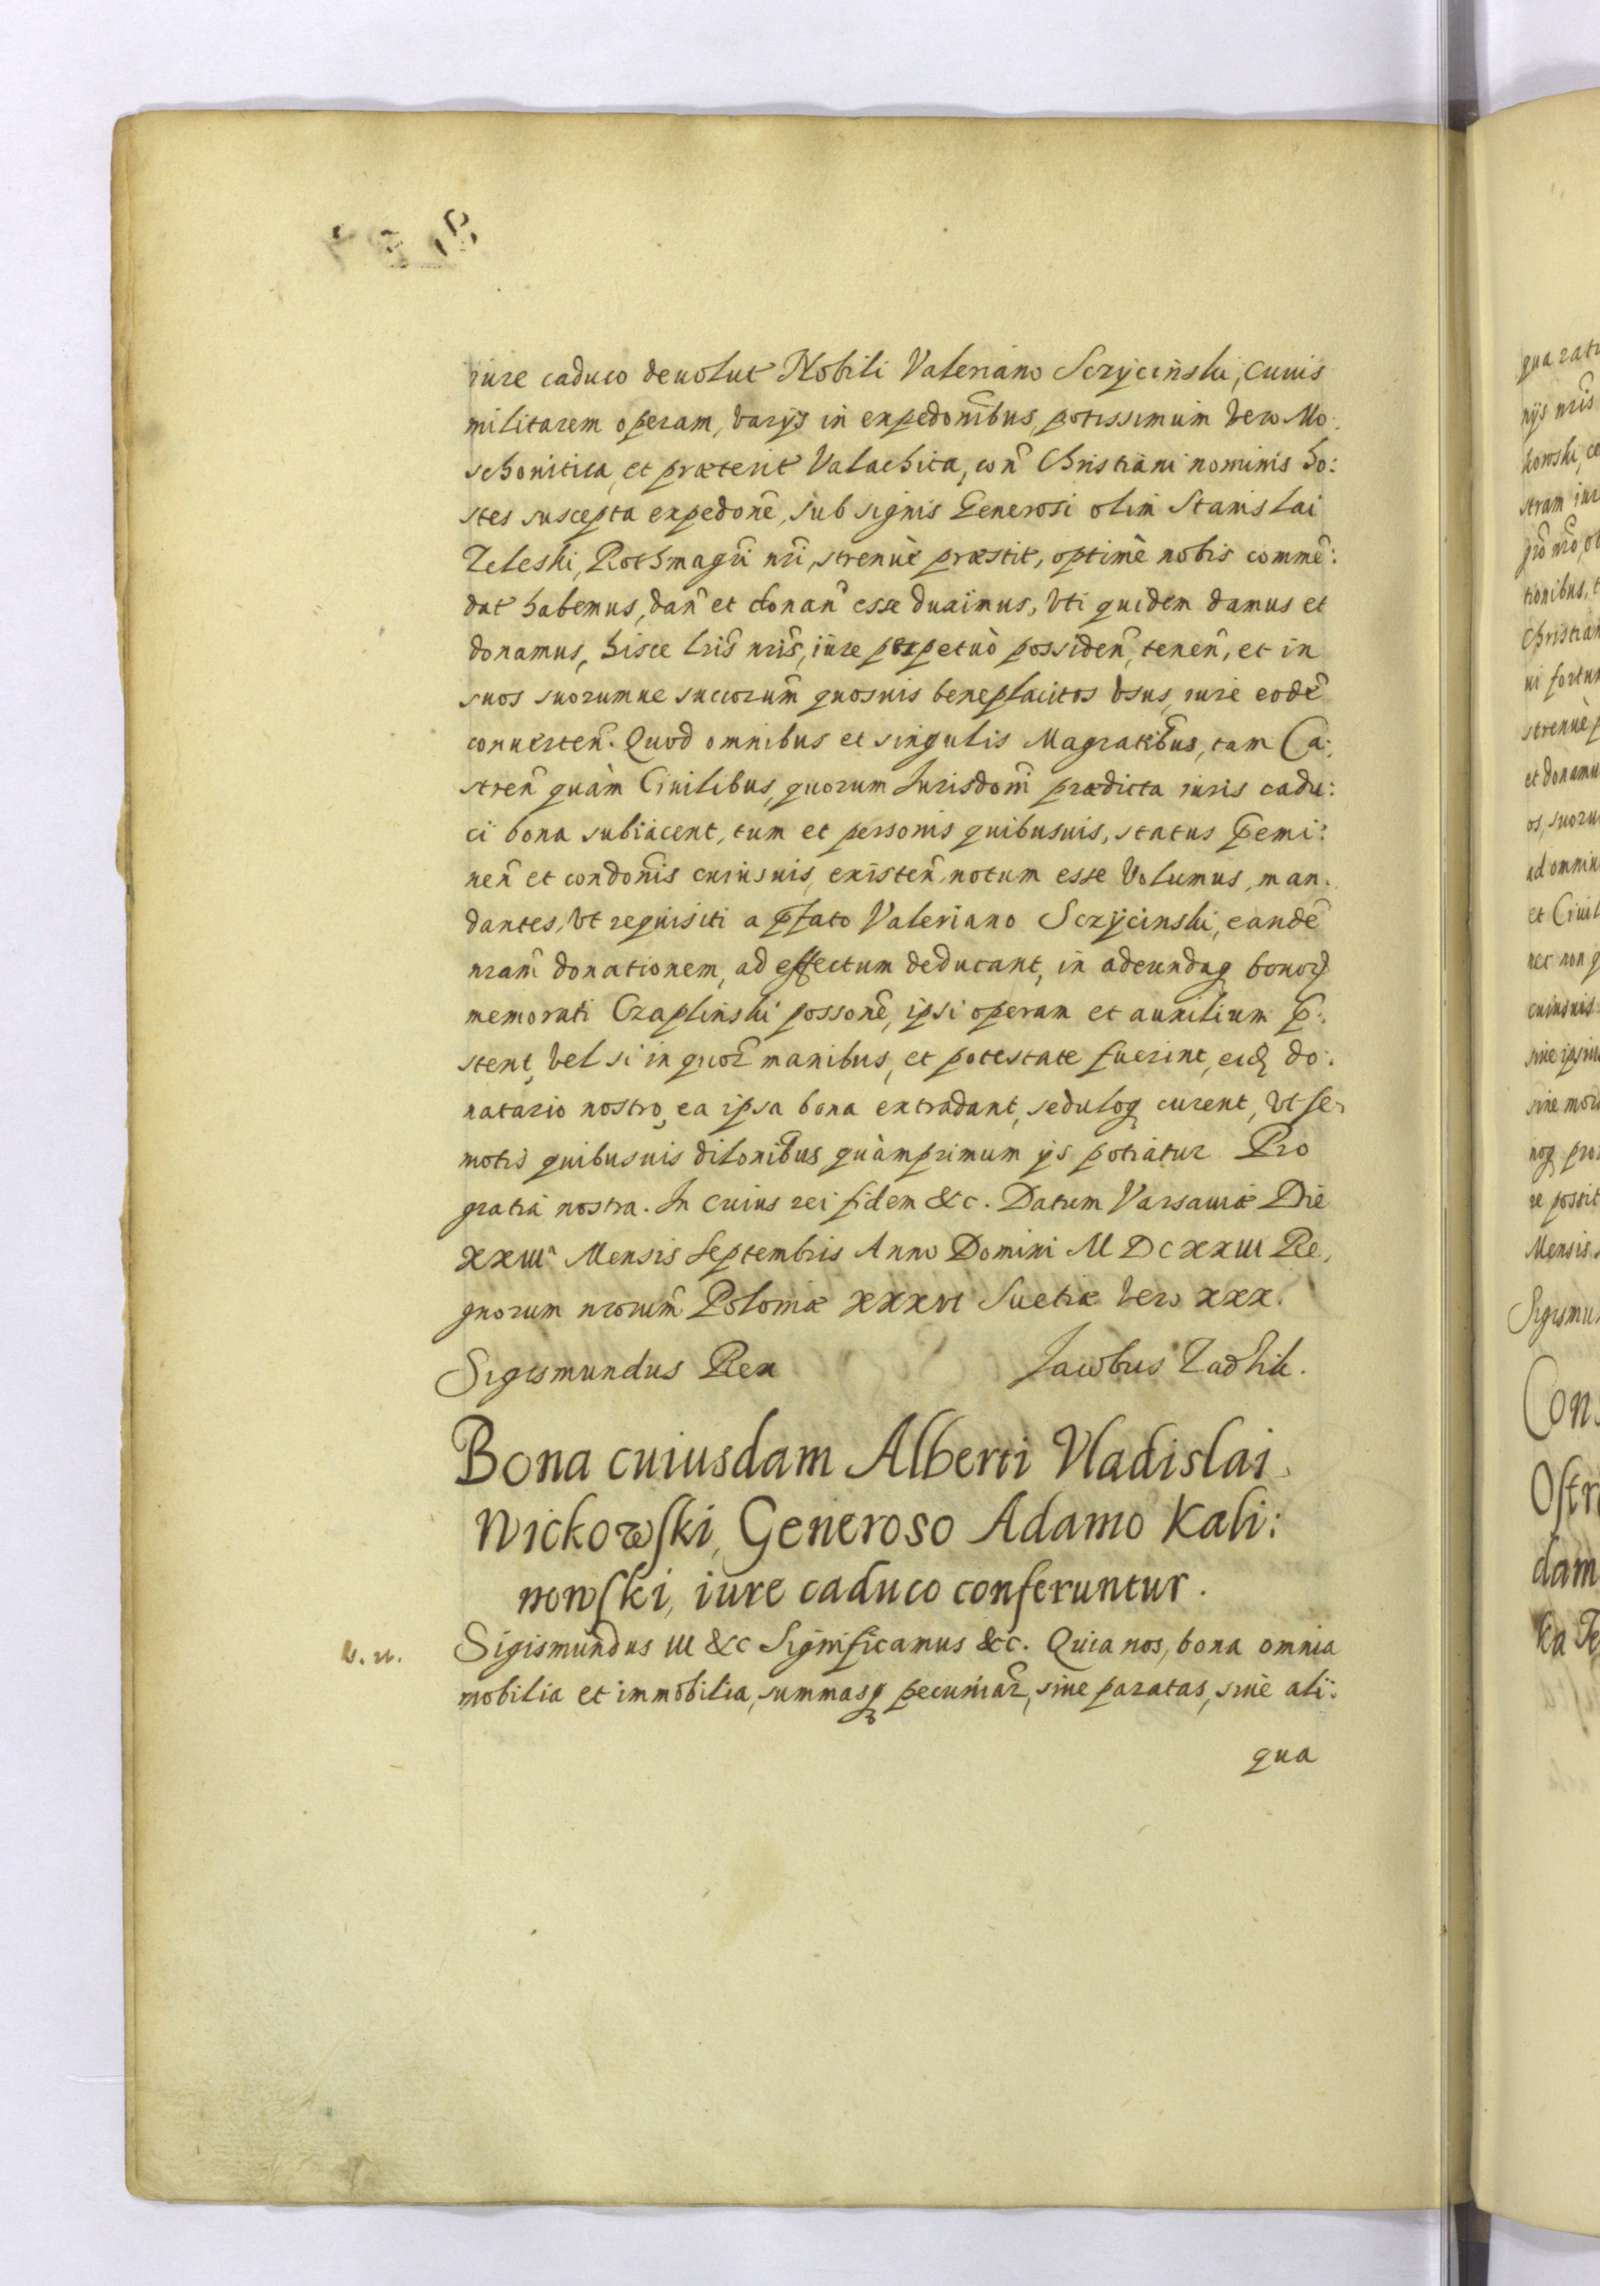 iure caduco deuolut Nobili Valeriano Scrÿcinski, cuius
militarem operam, varÿs in expedonibus, potissimum vero Mo:
schouitica, et præterit Valachica, con Christiani nominis ho:
stes suscepta expedone, sub signis Generosi olim Stanislai
Zeleski, Rothmagri nri, strenuè præstit, optimè nobis comme:
dat habemus, dan et donan esse duximus, vti quidem damus et
donamus, hisce lris nris, iure perpetuò possiden, tenen, et in
suos suorumue succorum quosuis beneplacitos vsus, iure eode
conuerten. Quod omnibus et singulis Magratibus, tam Ca:
stren quàm Ciuilibus, quorum Jurisdoni prædicta iuris cadu:
ci bona subiacent, tum et personis quibusuis, status p̃emi:
nen et condonis cuiusuis existen, notum esse volumus, man:
dantes, vt requisiti a p̃fato Valeriano Scrÿcinski, eande
nram donationem, ad effectum deducant, in adeundaq bonoꝝ
memorati Czaplinski possone, ipsi operam et auxilium p̃:
stent, vel si in quor manibus, et potestate fuerint, eid do:
natario nostro, ea ipsa bona extradant, seduloq curent, vt se:
motis quibusuis dilonibus quàmprimum ÿs potiatur Pro
gratia nostra. In cuius rei fidem &c. Datum Varsauiæ Die
XXIIIa Mensis Septembris Anno Domini MDCXXIII Re:
gnorum nrorum Poloniæ XXXVI Suetiæ vero XXX.
Sigismundus Rex Jacobus Zadzik.
Bona cuiusdam Alberti Vladislai
Wickowski, Generoso Adamo Kali:
nowski, iure caduco conferuntur.
Sigismundus III &c Significamus &c. Quia nos, bona omnia
mobilia et immobilia, summasq pecuniar, siue paratas, siue ali:
qua